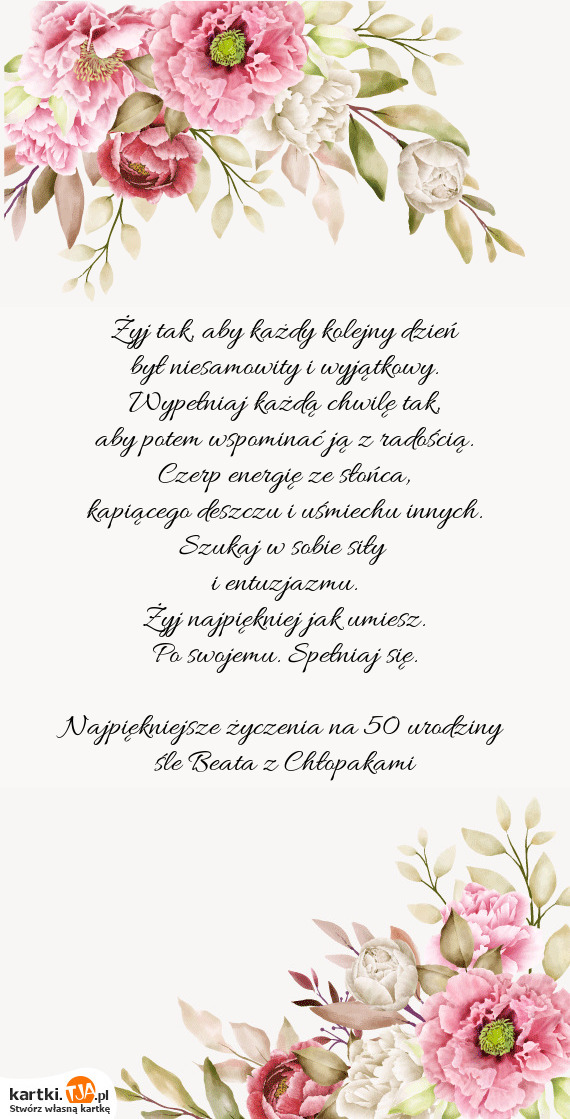 Żyj tak, aby każdy kolejny dzień
był niesamowity i wyjątkowy.
Wypełniaj każdą chwilę tak,
aby potem wspominać ją z radością.
Czerp energię ze słońca,
kapiącego deszczu i uśmiechu innych.
Szukaj w sobie siły
i entuzjazmu.
Żyj najpiękniej jak umiesz.
Po swojemu. Spełniaj się.
Najpiękniejsze życzenia na 50 urodziny
śle Beata z Chłopakami
kartki.TJA.pl
Stwórz własną kartkę